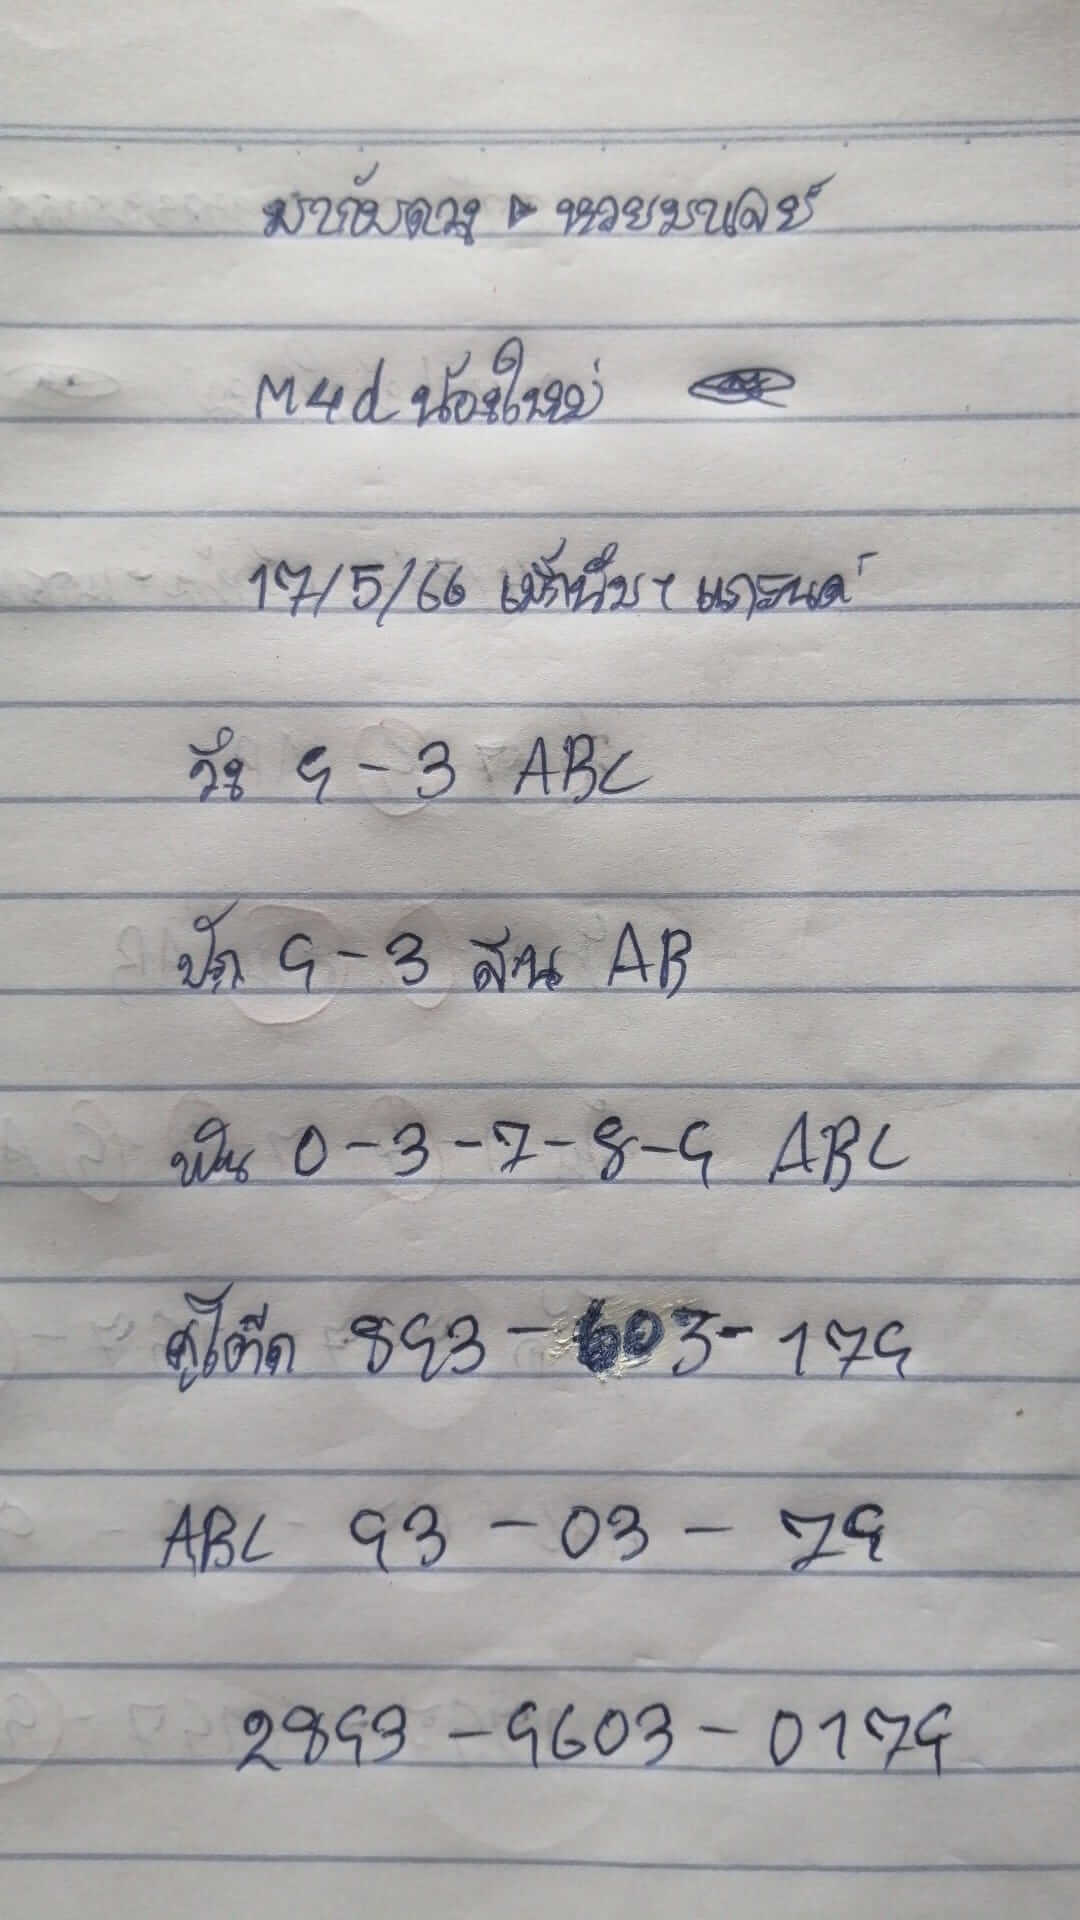 มากับดวง ▶ หวยมาเลย์
M4d น้องใหม่
17/5/66 แกรนด์
วิ่ง 9 - 3 ABC
ปัก 9 - 3 สน AB
ฟัน 0 - 3 - 7 - 8 - 9 ABC
คู่โต๊ด 893 - 603 - 179
ABC 93 - 03 - 79
2893 - 9603 - 0179